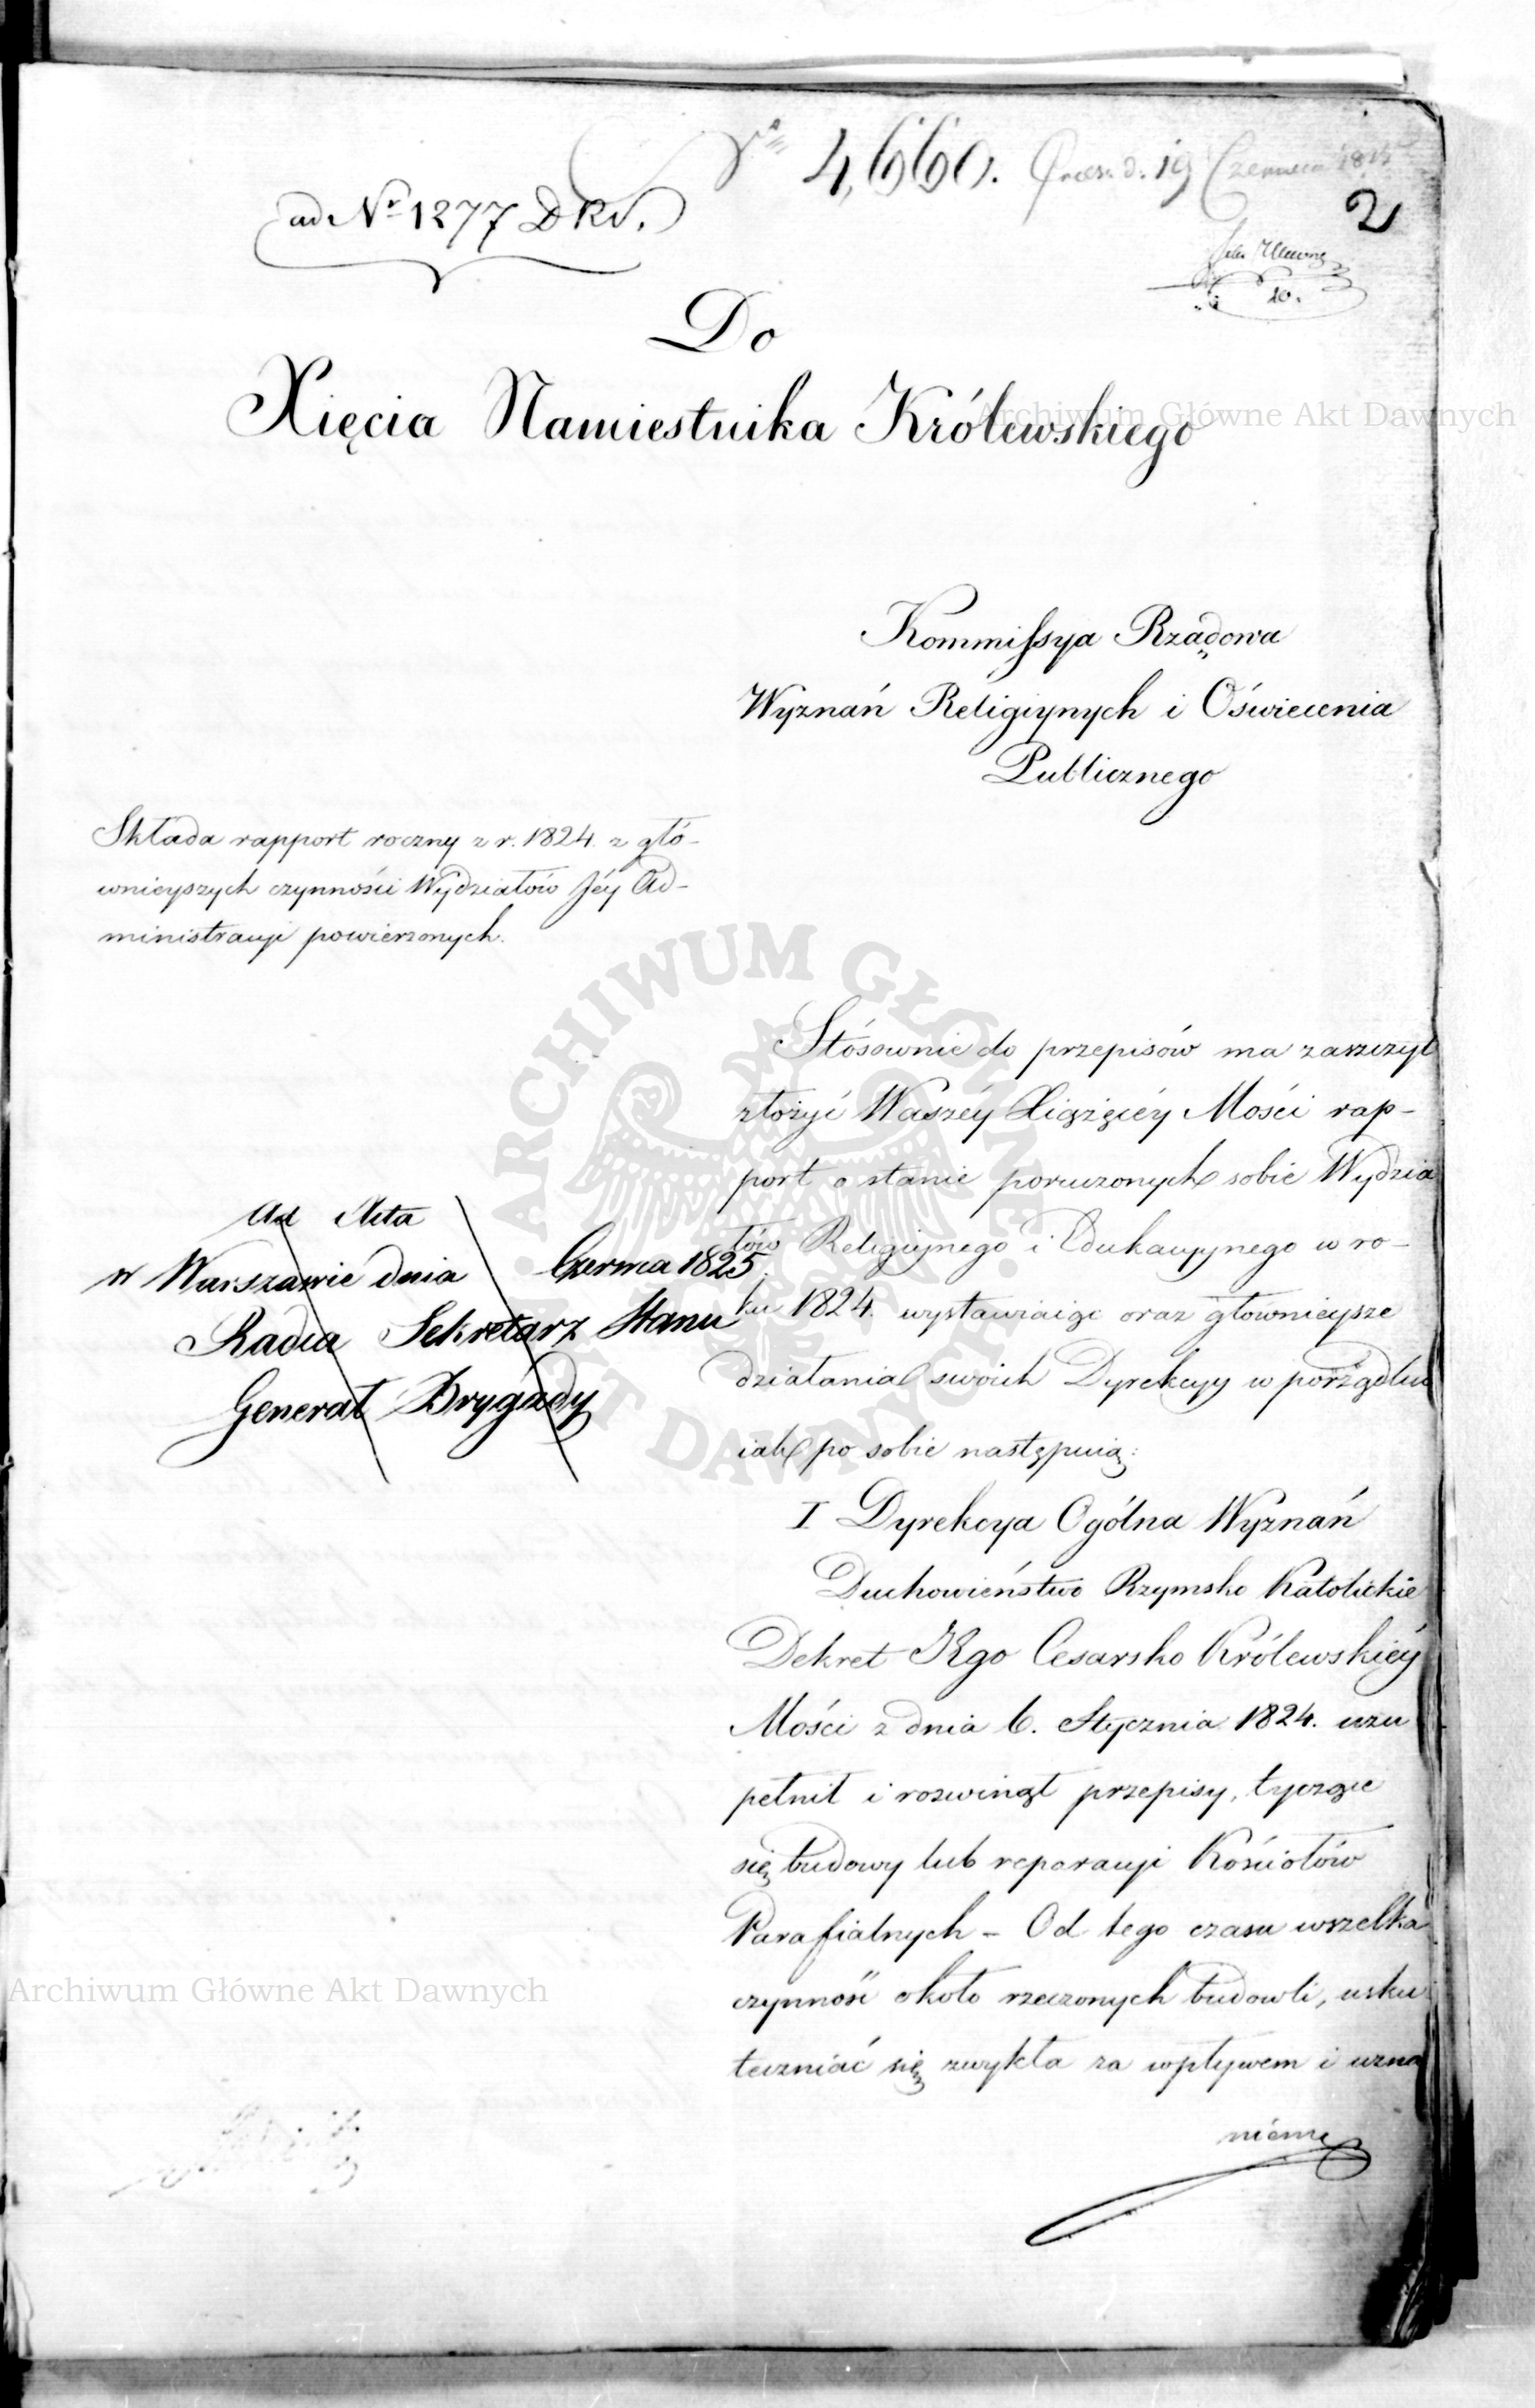 Nro 4,660. Præs. d. 19 Czerwca 1825
ad Nr 1277 DKN.
2
10.
Do
Xięcia Namiestnika Królewskiego
Archiwum Główne Akt Dawnych
Kommissya Rządowa
Wyznań Religiynych i Oświecenia
Publicznego
Składa rapport roczny z r. 1824. z głó-
wnieyszych czynności Wydziałów Jéy Ad-
ministracyi powierzonych.
ARCHIWUM GŁÓWNE AKT DAWNYCH
Stósownie do przepisów ma zaszczyt
złożyć Waszéy Xiążęcéy Mości rap-
port o stanie poruczonych sobie Wydzia
łów Religiynego i Edukacyynego w ro-
ku 1824. wystawiaiąc oraz głownieysze
działania swoich Dyrekcyy w porządku
iak po sobie następuią:
Ad Acta
w Warszawie dnia Czerwca 1825.
Radca Sekretarz Stanu
Generał Brygady
I Dyrekcya Ogólna Wyznań
Duchowieństwo Rzymsko Katolickie
Dekret JKgo Cesarsko Królewskiéy
Mości z dnia 6. Stycznia 1824. uzu
pełnił i rozwinął przepisy, tyczące
się budowy lub reparacyi Kościołów
Parafialnych - Od tego czasu wszelka
czynność około rzeczonych budowli, usku
teczniać się zwykła za wpływem i uzna
niem
Archiwum Główne Akt Dawnych